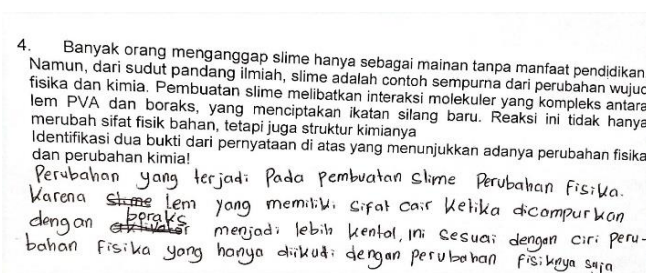 4. Banyak orang menganggap slime hanya sebagai mainan tanpa manfaat pendidikan
Namun, dari sudut pandang ilmiah, slime adalah contoh sempurna dari perubahan wujud
fisika dan kimia. Pembuatan slime melibatkan interaksi molekuler yang kompleks antara
lem PVA dan boraks, yang menciptakan ikatan silang baru. Reaksi ini tidak hanya
merubah sifat fisik bahan, tetapi juga struktur kimianya
Identifikasi dua bukti dari pernyataan di atas yang menunjukkan adanya perubahan fisika
dan perubahan kimia!
Perubahan yang terjadi Pada pembuatan slime Perubahan Fisika.
Karena slime lem yang memiliki sifat cair ketika dicompurkan
boraks
dengan aktivator menjadi lebih kental, ini sesuai dengan ciri peru-
bahan fisika yang hanya diikuti dengan perubahan fisiknya saja